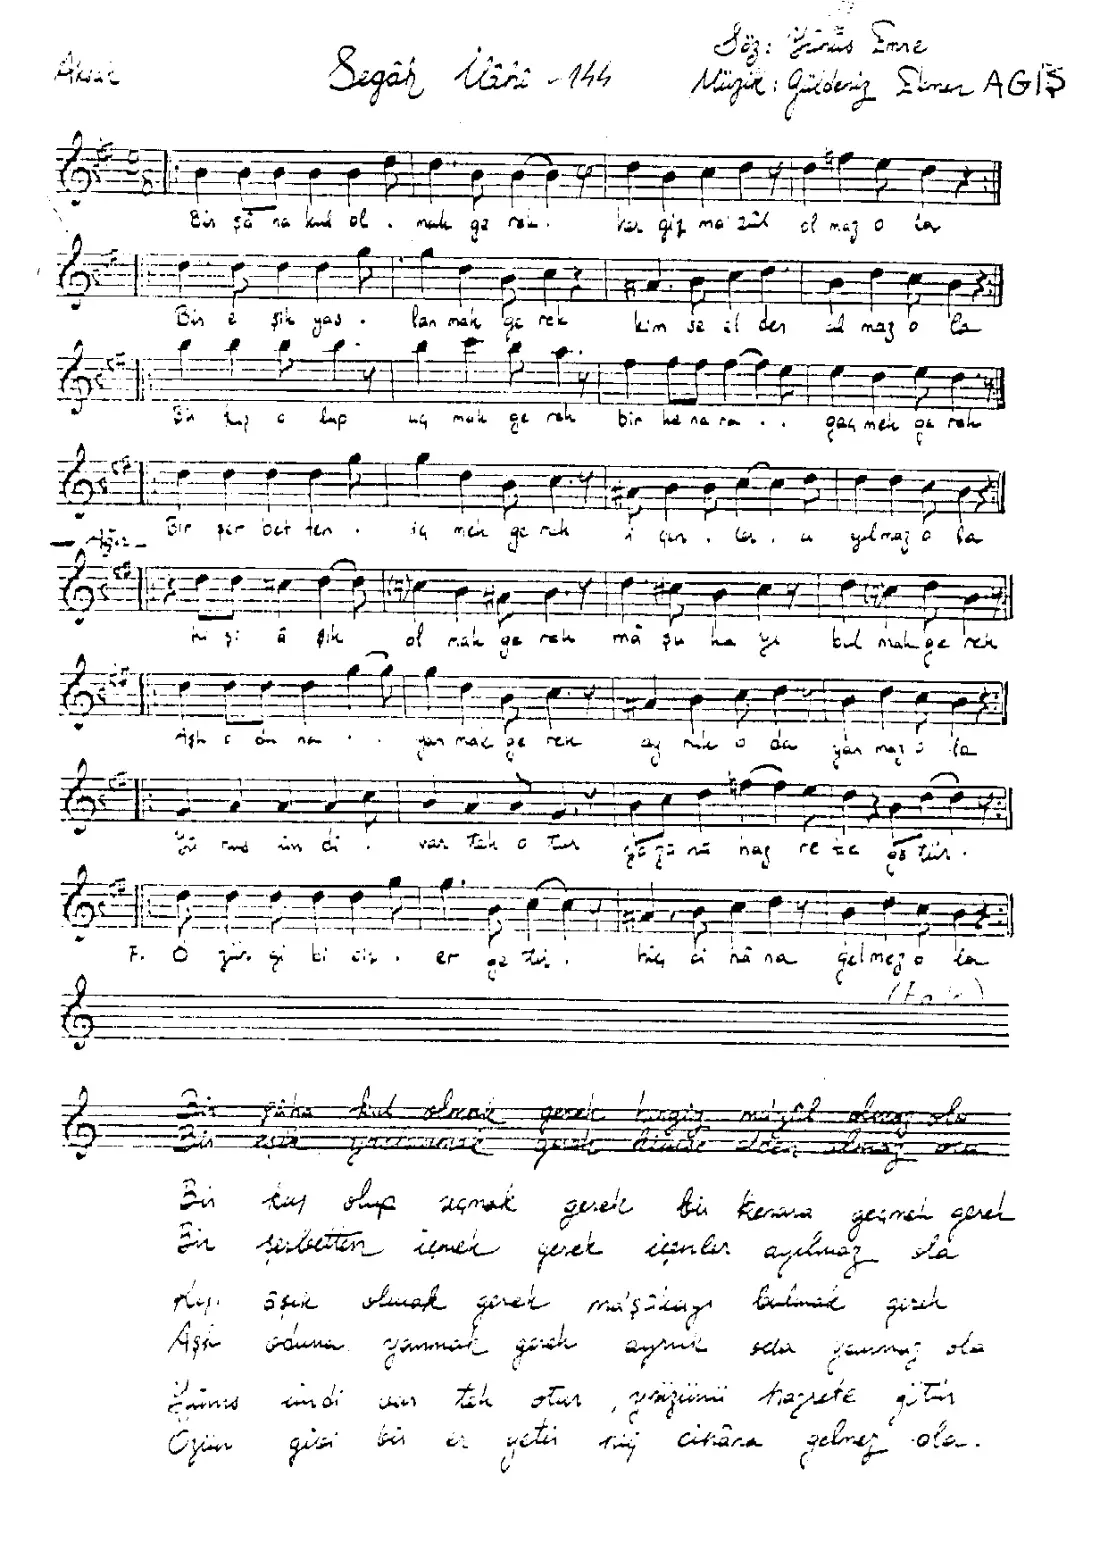 Söz: Yunus Emre
Aksak Segâh İlâhî - 144
Müzik: Güldeniz Ekmen AGİŞ
Bir şâ ha kul ol . mak ge rek . her giz ma' zûl ol maz o la
Bir e şik yas . lan mak ge rek kim se el den al maz o la
Bir kuş o lup uç mak ge rek bir ke na ra . . geç mek ge rek
Bir şer bet ten . iç mek ge rek i çen . ler . a yılmaz o la
- Ağır -
ki şi â şık ol mak ge rek mâ şu ka yı bul mak ge rek
Aşk o du na . . yan mak ge rek ay rık o da yan maz o la
Yû nus im di . var tek o tur yü zü nü haz re te gö tür .
F. Ö zün . gi bi bir . er ge tir . hiç ci hâ na gelmez o la
(Fa )
Bir şâha kul olmak gerek hergiz ma'zûl olmaz ola
Bir eşik yaslanmak gerek kimse elden almaz ola
Bir kuş olup uçmak gerek bir kenara geçmek gerek
Bir şerbetten içmek gerek içenler ayılmaz ola
Kişi âşık olmak gerek ma'şûkayı bulmak gerek
Aşk oduna yanmak gerek ayrık oda yanmaz ola
Yûnus imdi var tek otur, yüzünü hazrete götür
Özün gibi bir er getir hiç cihâna gelmez ola.